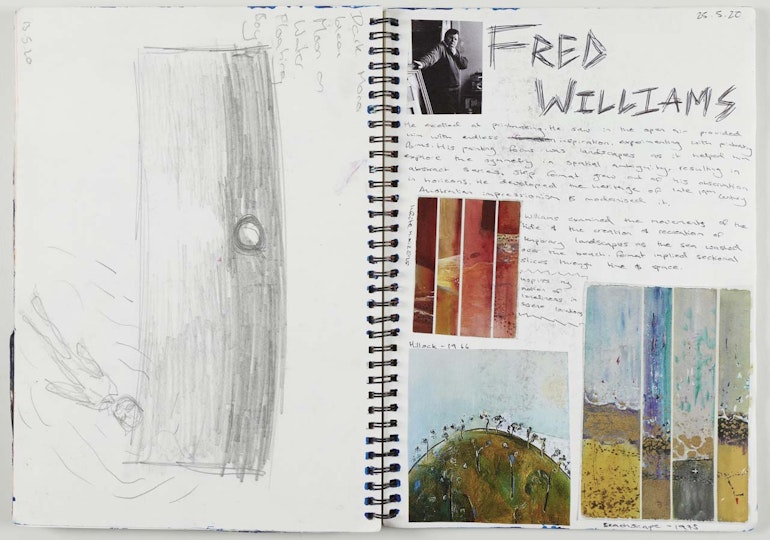 13.5.20
Dark Mono
Moon on
Water
Floating
Boy
25.5.20
FRED
WILLIAMS
He excelled at printmaking. He saw in the open air provided
him with endless inspiration, experimenting with primary
forms. His painting focus was landscapes as it helped him
explore the symmetry in spatial ambiguity resulting in
abstract series, strip format grew out of his observation
in horizons. He developed the heritage of late 19th century
Australian impressionism & modernised it.
Williams examined the movements of the
tide & the creation & recreation of
temporary landscapes as the sea washed
over the beach. Format implied sectional
slices through time & space.
inspires my
notion of
loneliness in
Hillock - 1966
Beachscape - 1975